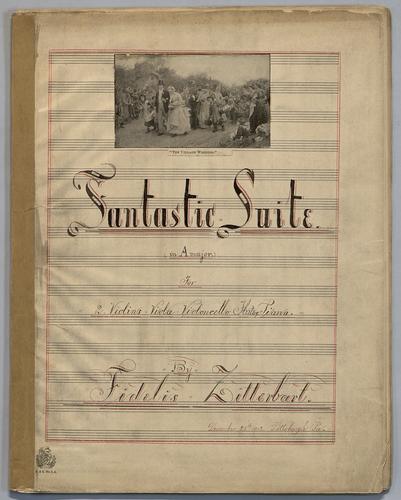 "THE VILLAGE WEDDING."
Fantastic Suite.
(in A major)
For
2 Violins - Viola - Violoncello - Flute, Piano.
By
Fidelis Zitterbart.
December Pittsburgh Pa.